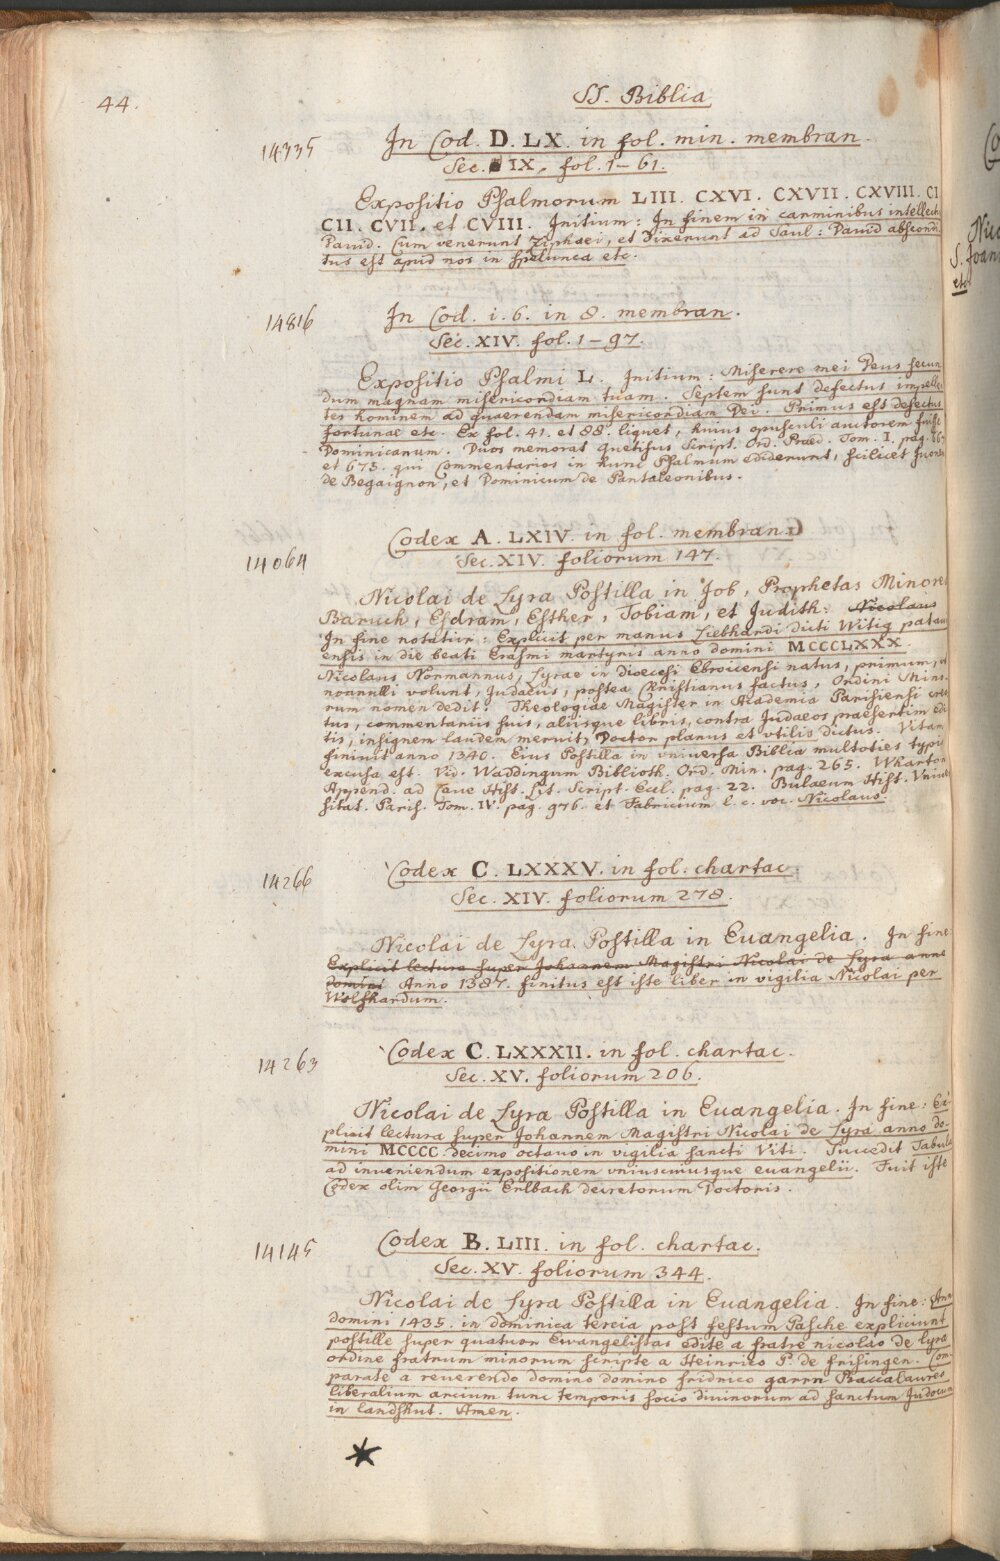 44.
SS. Biblia
14335
In Cod. D. LX. in fol. min. membran.
Sec. IX. fol. 1-61.
Expositio Psalmorum LIII. CXVI. CXVII. CXVIII. CI
CII. CVII. et CVIII. Initium: In finem in carminibus intellect
Dauid. Cum venerunt Ziphaei, et dixerunt ad Saul: Dauid abscondi
tus est apud nos in spelunca etc.
14816
In Cod. i. 6. in 8. membran.
Sec. XIV. fol. 1-97.
Expositio Psalmi L. Initium: Miserere mei Deus secun
dum magnam misericordiam tuam. Septem sunt defectus impelle
tes hominem ad quaerendam misericordiam Dei. Primus est defectus
fortunae etc. Ex fol. 41. et 88. liquet, huius opusculi auctorem fuisse
Dominicanum. Duos memorat Quetifus Script. Ord. Praed. Tom. I. pag.
et 673. qui Commentarios in hunc Psalmum ediderunt, scilicet
de Begaignon, et Dominicum de Pantaleonibus.
14064
Codex A. LXIV. in fol. membran.
Sec. XIV. foliorum 147.
Nicolai de Lyra Postilla in Job, Prophetas Minores
Baruch, Esdram, Esther, Tobiam, et Judith. Nicolaus
In fine notatur: Explicit per manus Liebhardi dicti Witig patau
ensis in die beati Erasmi martyris anno domini MCCCLXXX.
Nicolaus Normannus, Lyrae in dioecesi Ebroicensi natus, primum, ut
nonnulli volunt, Judaeus, postea Christianus factus, Ordini Mino
rum nomen dedit. Theologiae Magister in Academia Parisiensi crea
tus, commentariis suis, aliisque libris, contra Judaeos praesertim edi
tis, insignem laudem meruit, Doctor planus et vtilis dictus. Vitam
finiuit anno 1340. Eius Postilla in vniuersa Biblia multoties typis
excusa est. Vid. Waddingum Biblioth. Ord. Min. pag. 265. Wharton
Append. ad Caue Hist. Lit. Script. Eccl. pag. 22. Bulaeum Hist. Vniuer
sitat. Paris. Tom. IV. pag. 976. et Fabricium l. c. voc. Nicolaus.
14266
Codex C. LXXXV. in fol. chartac.
Sec. XIV. foliorum 278.
Nicolai de Lyra Postilla in Euangelia. In fine
Explicit lectura super Johannem Magistri Nicolai de Lyra anno
domini Anno 1387. finitus est iste liber in vigilia Nicolai per
Wolfhardum.
14263
Codex C. LXXXII. in fol. chartac.
Sec. XV. foliorum 206.
Nicolai de Lyra Postilla in Euangelia. In fine: Ex
plicit lectura super Johannem Magistri Nicolai de Lyra anno do-
mini MCCCC decimo octauo in vigilia sancti Viti. Succedit Tabula
ad inueniendum expositionem vniuscuiusque euangelii. Fuit iste
Codex olim Georgii Erlbach decretorum Doctoris.
14145
Codex B. LIII. in fol. chartac.
Sec. XV. foliorum 344.
Nicolai de Lyra Postilla in Euangelia. In fine: Ann
domini 1435. in dominica tercia post festum Pasche expliciunt
postille super quatuor Ewangelistas edite a fratre nicolao de lyra
ordine fratrum minorum scripte a Heinrico P. de frisingen. Com
parate a reuerendo domino domino fridrico garrn Baccalaureo
liberalium arcium tunc temporis socio diuinorum ad sanctum Judocum
in landshut. Amen.